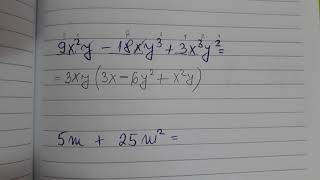 9x²y - 18xy³ + 3x³y² =
= 3xy (3x - 6y² + x²y)
5m + 25m² =